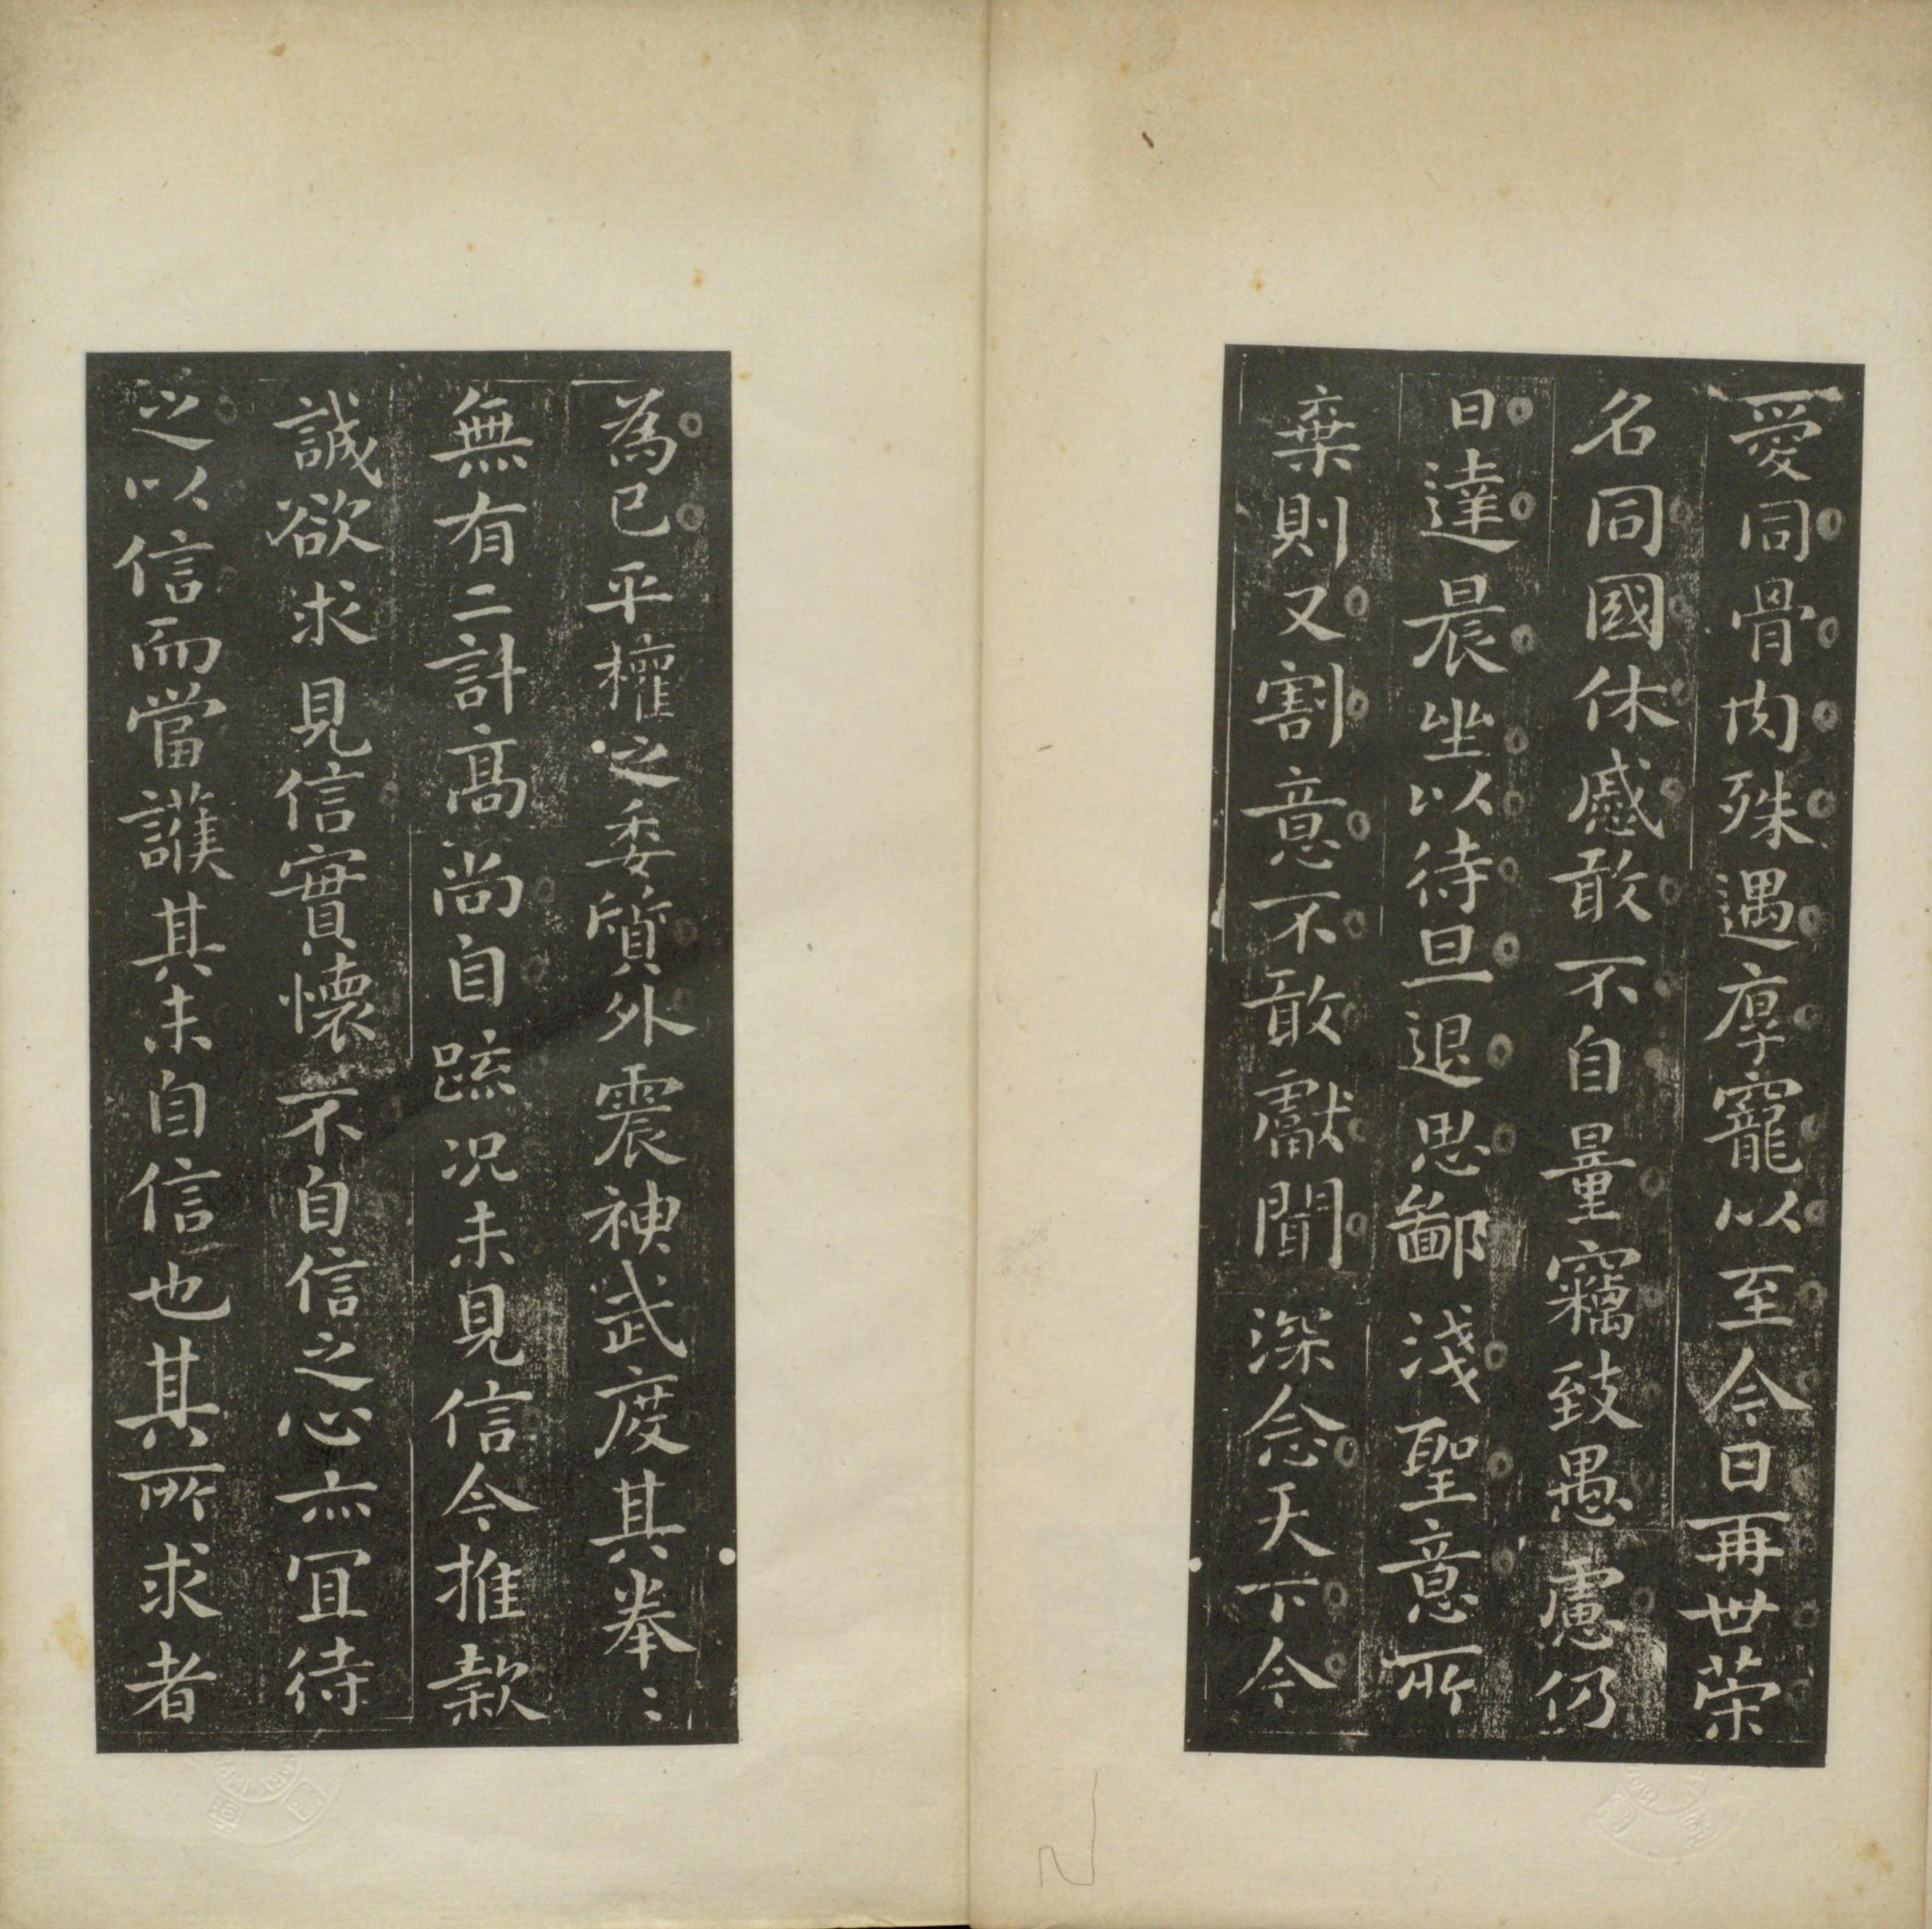 愛同骨肉殊遇厚寵以至今日再世荣
名同國休慼敢不自量竊致愚慮仍
日達晨坐以待旦退思鄙淺聖意所
棄則又割意不敢獻聞深念天下今
為已平權之委質外震神武度其拳〻
無有二計高尚自疏況未見信今推款
誠欲求見信實懷不自信之心亦宜待
之以信而當護其未自信也其所求者